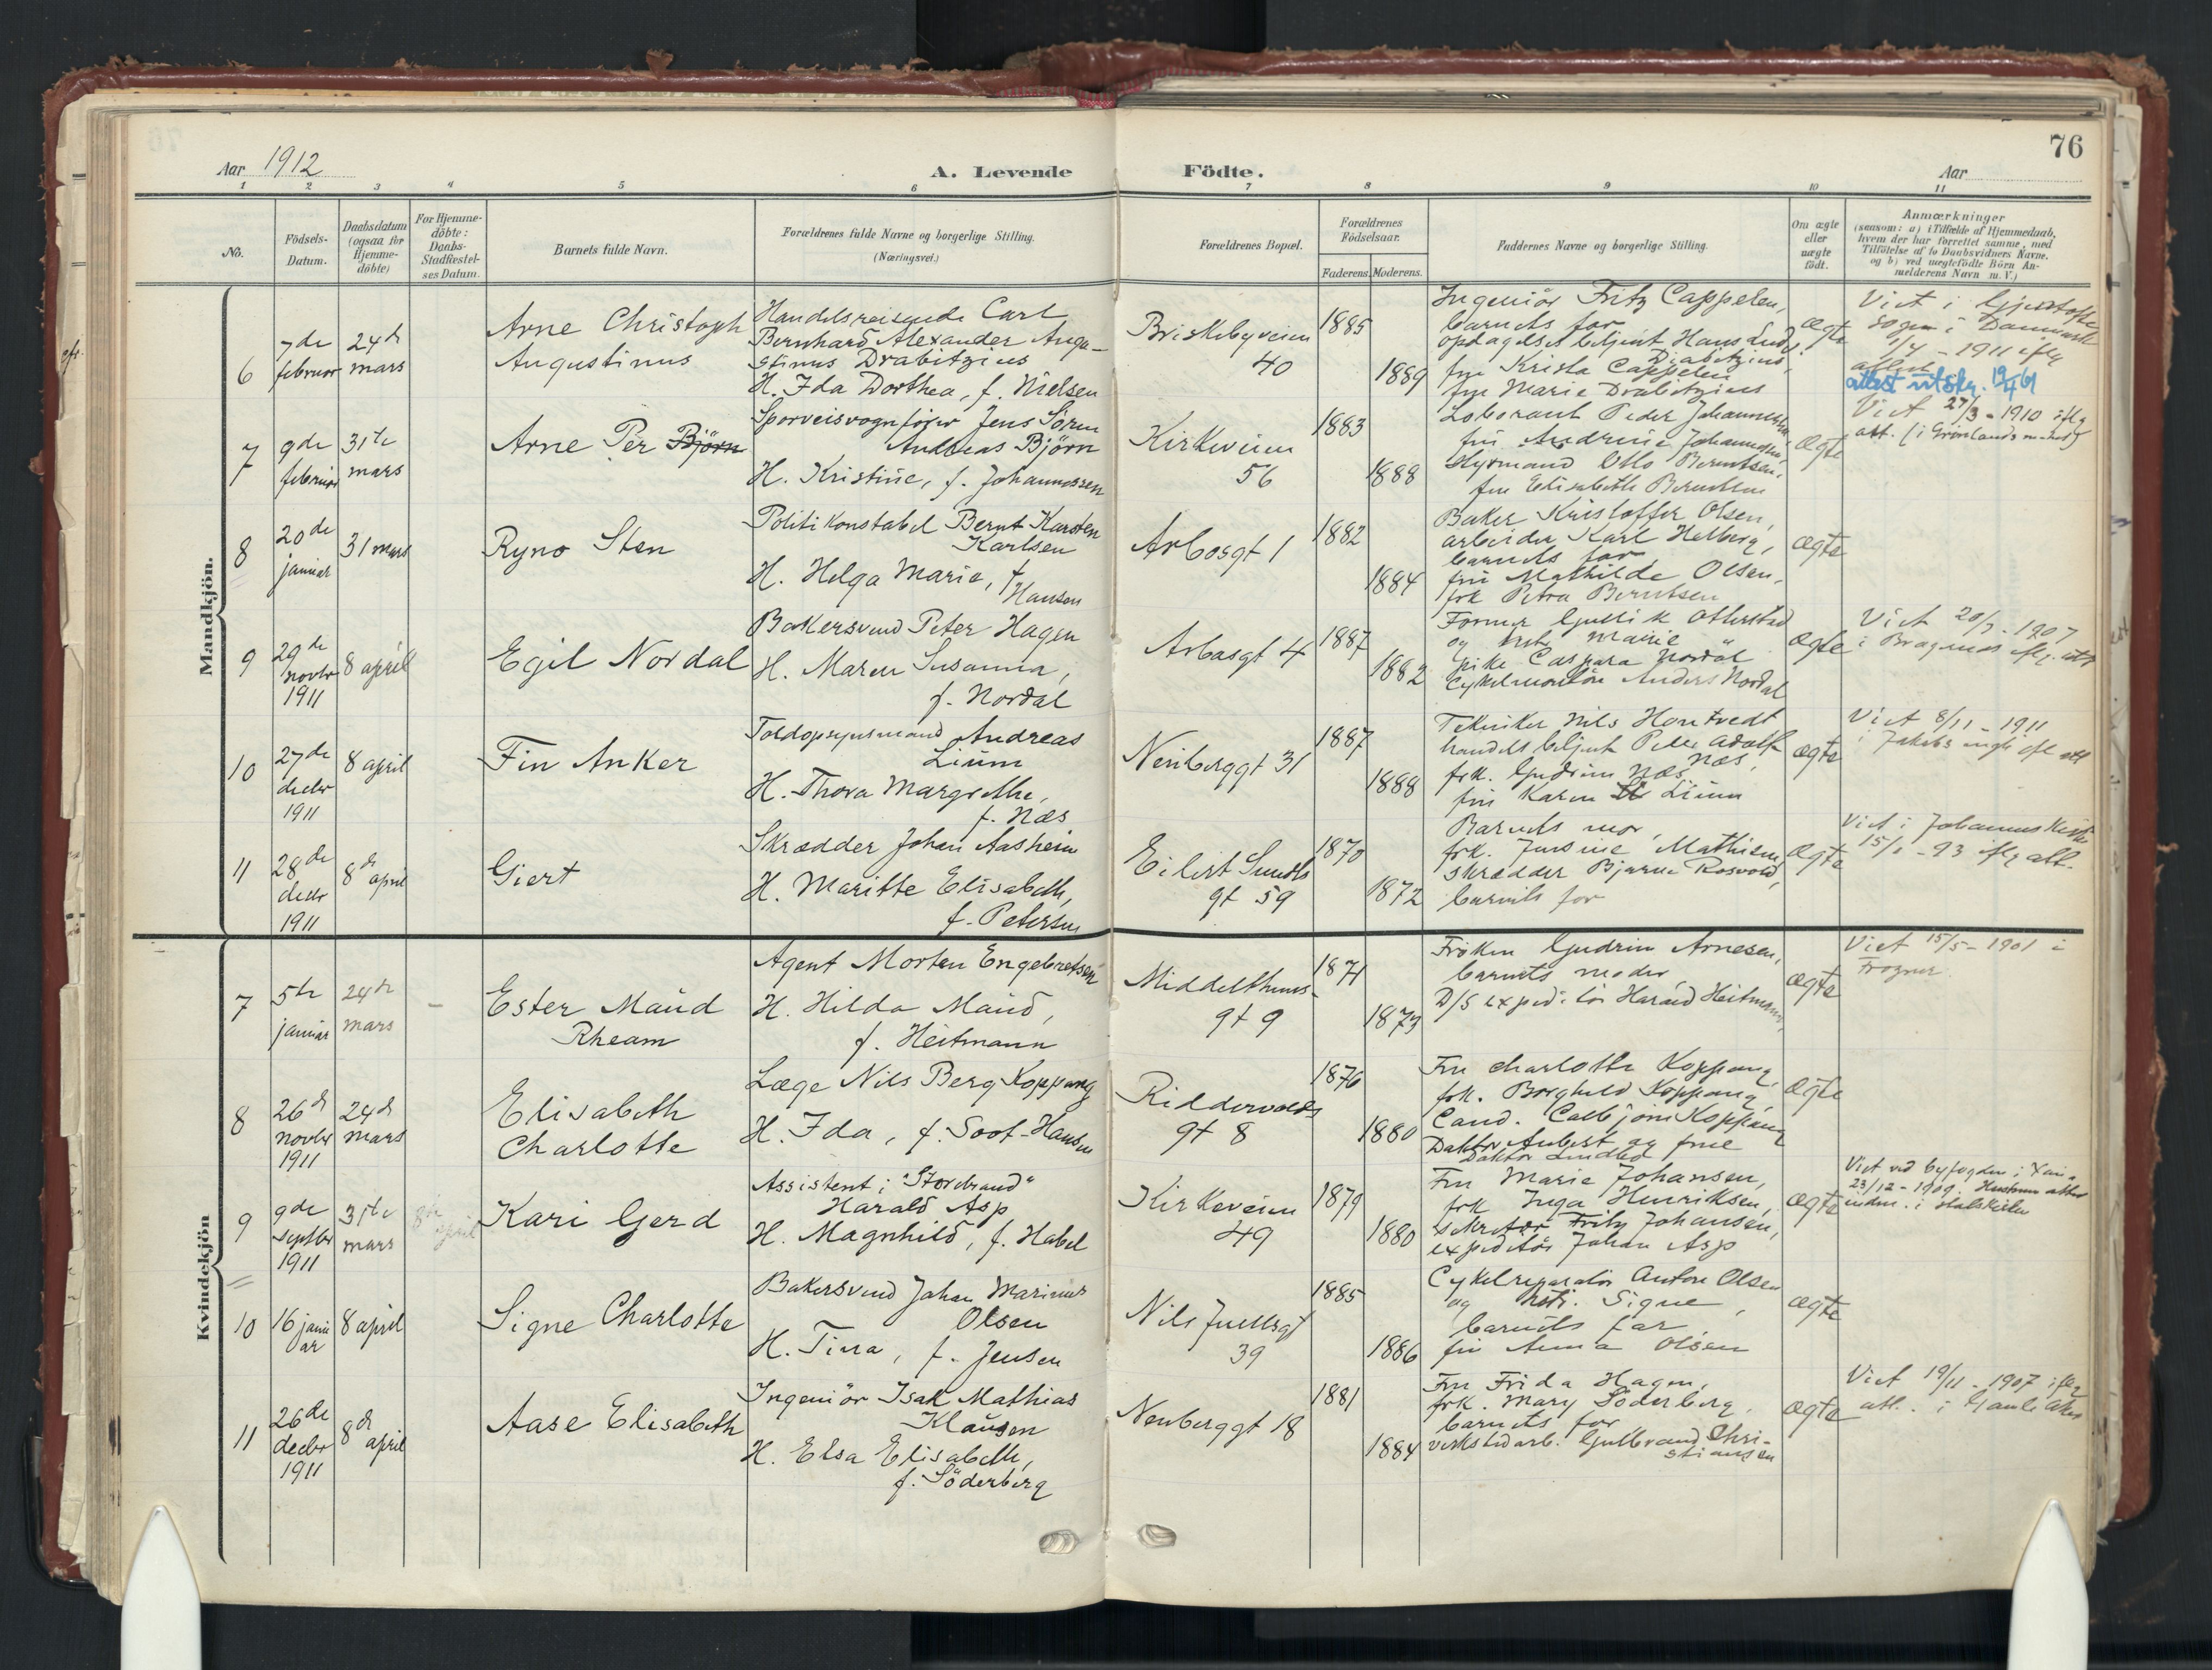 76
Aar 1912
A. Levende
Födte.
Aar
1 2 3 4 5 6 7 8 9 10 11
No.
Födsels-
Datum.
Daabsdatum
(ogsaa for
Hjemme-
döbte)
For Hjemme-
döbte:
Daabs-
Stadfæstel-
ses Datum.
Barnets fulde Navn.
Forældrenes fulde Navne og borgerlige Stilling.
(Næringsvei.)
Forældrenes Bopæl.
Forældrenes
Födselsaar.
Faderens.
Moderens.
Faddernes Navne og borgerlige Stilling.
Om ægte
eller
uægte
födt.
Anmærkninger
(saasom: a) i Tilfælde af Hjemmedaab,
hvem der har forrettet samme, med
Tilföielse af to Daabsvidners Navne.
og b) ved uægtefödte Börn An-
melderens Navn m. V.)
Mandkjön.
6
7de
februar
24de
mars
Arne Christoph
Augustinus
Handelsreisende Carl
Bernhard Alexander Augu-
stinus Drabitzius
H. Ida Dorthea, f. Nielsen
Briskebyveien
40
1885
1889
Ingeniör Fritz Cappelen,
barnets far
opdagelsesbetjent Hans Ludv.
Drabitzius,
fru Krista Cappelen
fru Marie Drabitzius
ægte
Viet i
sogn i Danmark
1/7 - 1911 iflg
attest
attest utskr. 19/4 61
7
9de
februar
31te
mars
Arne Per Björn
Sporveisvognförer Jens Sören
Andreas Björn
H. Kristine, f. Johannessen
Kirkeveien
56
1883
1888
Laborant Peder Johannessen
fru Andrine Johannessen,
styrmand Otto Berentsen,
fru Elisabeth Berentsen
ægte
Viet 27/3 - 1910 iflg
att. (i Grönlands menigh)
8
20de
januar
31 mars
Ryno Sten
Politikonstabel Bernt Karsten
Karlsen
H. Helga Marie, f.
Hansen
Arbosgt 1
1882
1884
Baker Kristoffer Olsen,
arbeider Karl Helberg,
barnets far,
fru Mathilde Olsen,
frk Petra Berntsen
ægte
9
29de
novbr
1911
8 april
Egil Nordal
Bakersvend Peter Hagen
H. Maren Susanna,
f. Nordal
Arbosgt 4
1887
1882
Former Gullik Atterstad
og hstr. Marie "
pike Caspara Nordal
Cykelmontör Anders Nordal
ægte
Viet 20/7 - 1907
i Bragernes iflg. att
10
27de
decbr
1911
8 april
Fin Anker
Toldopsynsmand Andreas
Lium
H. Thora Margrethe,
f. Næs
Neuberggt 31
1887
1888
Tekniker Nils Hontvedt
handelsbetjent Peter Adolf
Næs,
frk. Gudrun Næs
fru Karen Lium
ægte
Viet 8/11 - 1911
i Jakobs mgh. ifl att
11
28de
decbr
1911
8de april
Giert
Skrædder Johan Aasheim
H. Maritte Elisabeth,
f. Petersen
Eilert Sundts
gt 59
1870
1872
Barnets mor,
frk. Jensine Mathiesen,
skrædder Bjarne Rosvold,
barnets far
ægte
Viet i Johannes Kirke
15/1 - 93 iflg att.
Kvindekjön
7
5te
januar
24de
mars
-
Ester Maud
Rheam
Agent Morten Engebretsen
H. Hilda Maud,
f. Heitmann
Middelthuns-
gt 9
1871
1873
Fröken Gudrun Arnesen,
barnets moder
D/S expeditör Harald Heitmann,
ægte
Viet 15/5 - 1901 i
Frogner.
8
26d
novbr
1911
24d
mars
Elisabeth
Charlotte
Læge Nils Berg Koppang
H. Ida, f. Soot-Hansen
Riddervolds
gt 8
1876
1880
Fru Charlotte Koppang,
frk. Borghild Koppang,
Cand. Colbjörn Koppang
Doktor Aubert og frue
Doktor
ægte
9
9de
septbr
1911
31te
mars
8de
april
Kari Gerd
Assistent i "Storebrand"
Harald Asp
H. Magnhild, f. Habel
Kirkeveien
49
1879
1880
Fru Marie Johansen,
frk Inga Henriksen,
sekretær Fritz Johansen,
expeditör Johan Asp
ægte
Viet ved byfogden i
23/12 - 1909. Hustruen atter
indm. i statskirken
10
16 janu
ar
8 april
Signe Charlotte
Bakersvend Johan Marinus
Olsen
H. Tina, f. Jensen
Nils Juellsgt
39
1885
1886
Cykelreparatör Anton Olsen
og hstr. Signe,
barnets far
fru Anna Olsen
ægte
11
26de
decbr
1911
8d
april
Aase Elisabeth
Ingeniör Isak Mathias
Klausen
H. Elsa Elisabeth,
f. Söderberg
Neuberggt 18
1881
1884
Fru Frida Hagen,
frk. Mary Söderberg,
barnets far
verkstedarb. Gulbrand Chri-
stiansen
ægte
Viet 19/11 - 1907 iflg
att. i Gamle Aker